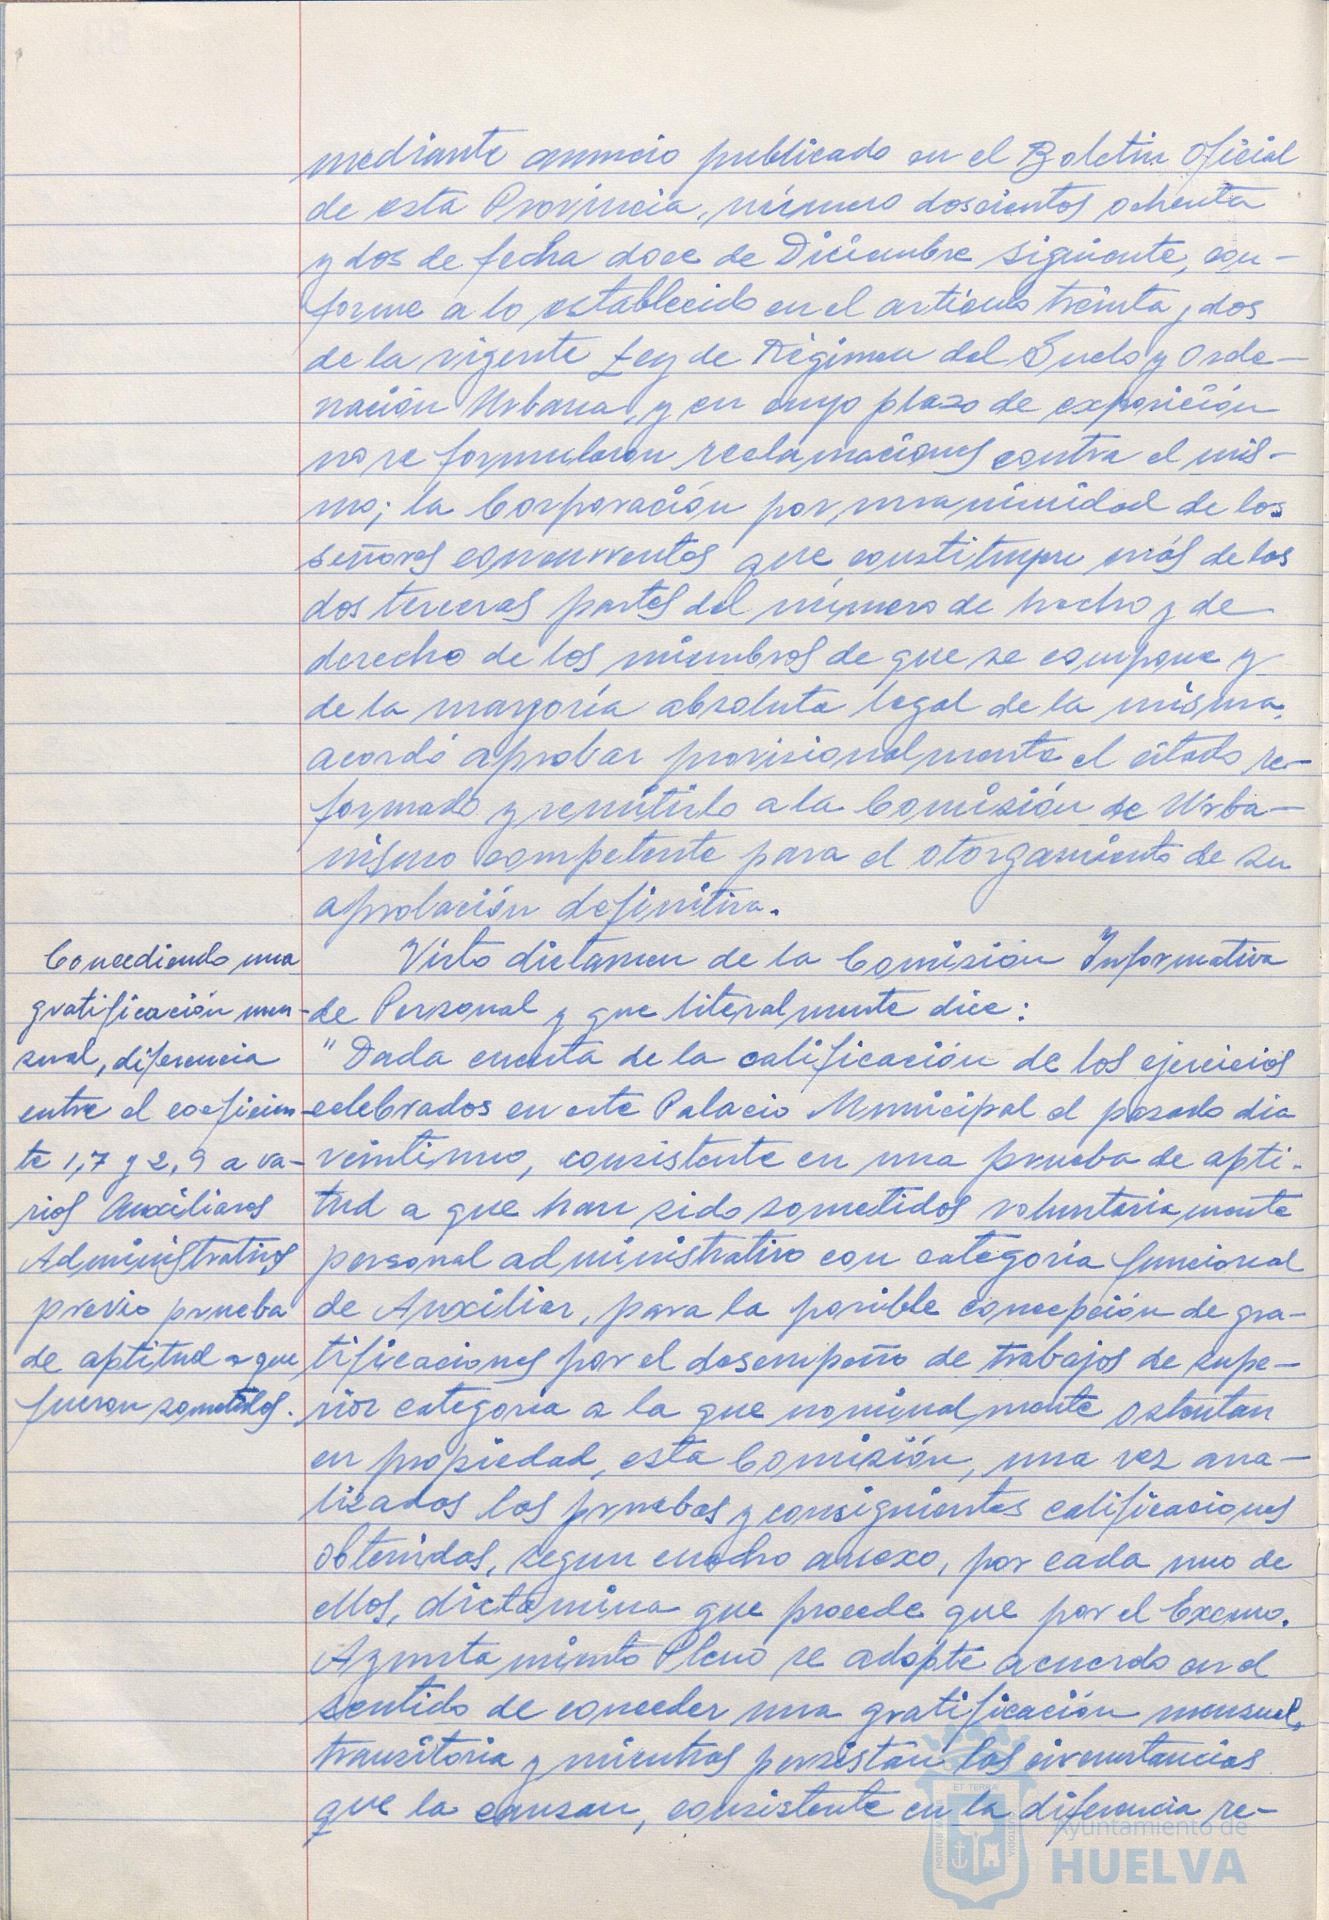 mediante anuncio publicado en el Boletin Oficial
de esta Provincia, número doscientos ochenta
y dos de fecha doce de Diciembre siguiente, con-
forme a lo establecido en el artículo treinta y dos
de la vigente Ley de Régimen del Suelo y Orde-
nación Urbana, y en cuyo plazo de exposición
no se formularon reclamaciones contra el mis-
mo; la Corporación por unanimidad de los
señores concurrentes que constituyen más de los
dos terceras partes del número de hecho y de
derecho de los miembros de que se compone y
de la mayoría absoluta legal de la misma,
acordó aprobar provisionalmente el citado re-
formado y remitirlo a la Comisión de Urba-
nismo competente para el otorgamiento de su
aprobación definitiva.
Concediendo una
gratificación men-
sual, diferencia
entre el coeficien-
te 1,7 y 2,9 a va-
rios Auxiliares
Administrativos
previo prueba
de aptitud a que
fueron sometidos.
Visto dictamen de la Comisión Informativa
de Personal y que literalmente dice:
"Dada cuenta de la calificación de los ejercicios
celebrados en este Palacio Municipal el pasado dia
veintiuno, consistente en una prueba de apti-
tud a que han sido sometidos voluntariamente
personal administrativo con categoría funcional
de Auxiliar, para la posible concepción de gra-
tificaciones por el desempeño de trabajos de supe-
rior categoria a la que nominalmente ostentan
en propiedad, esta Comisión, una vez ana-
lizados los pruebas y consiguientes calificaciones
obtenidas, segun cuadro anexo, por cada uno de
ellos, dictamina que procede que por el Excmo.
Ayuntamiento Pleno se adopte acuerdo en el
sentido de conceder una gratificación mensual,
transitoria y mientras persistan las circunstancias
que la causan, consistente en la diferencia re-
ET TERRAE
PORTUS MARIS
CUSTODIA
Ayuntamiento de
HUELVA